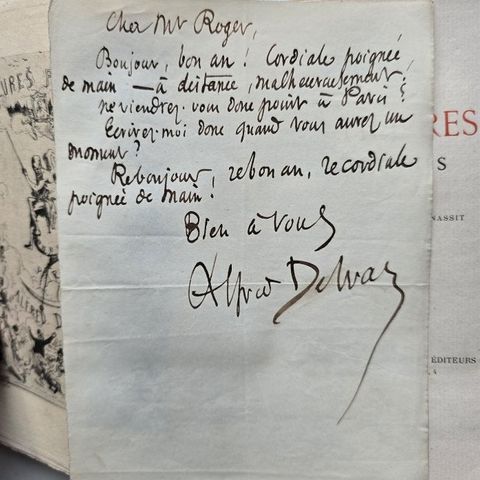 Cher Mr Roger,
Bonjour, bon an ! Cordiale poignée
de main — à distance, malheureusement ;
ne viendrez-vous donc point à Paris ?
Ecrivez-moi donc quand vous aurez un
moment ?
Rebonjour, rebon an, recordiale
poignée de main !
Bien à vous
Alfred Delvau
URES
RES
S
NASSIT
ÉDITEURS